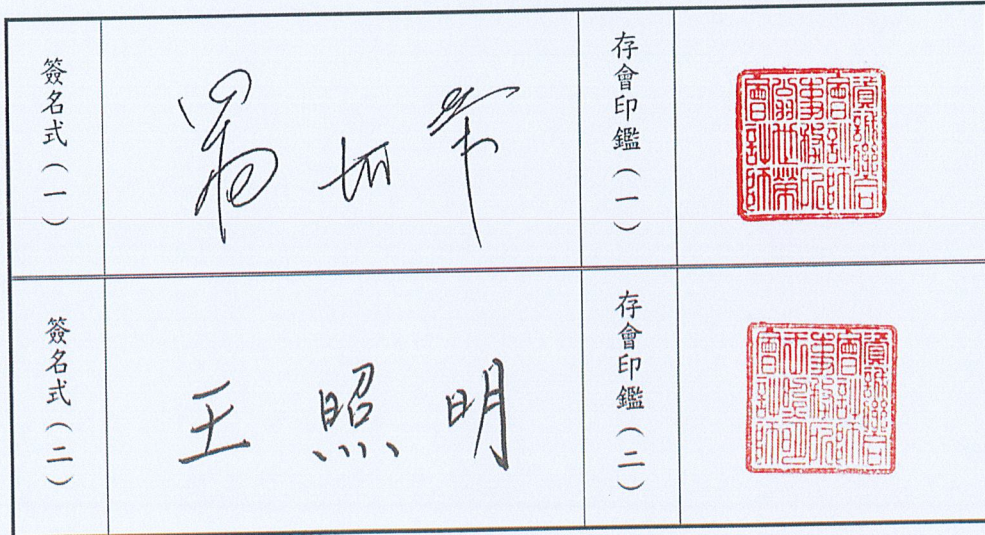 簽名式（一）
翁世榮
存會印鑑（一）
資誠聯合
會計師
事務所
翁世榮
會計師
簽名式（二）
王照明
存會印鑑（二）
資誠聯合
會計師
事務所
王照明
會計師